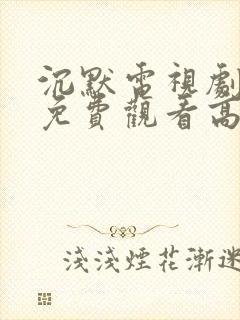 沉默電視劇
免費觀看高
淺淺煙花漸迷